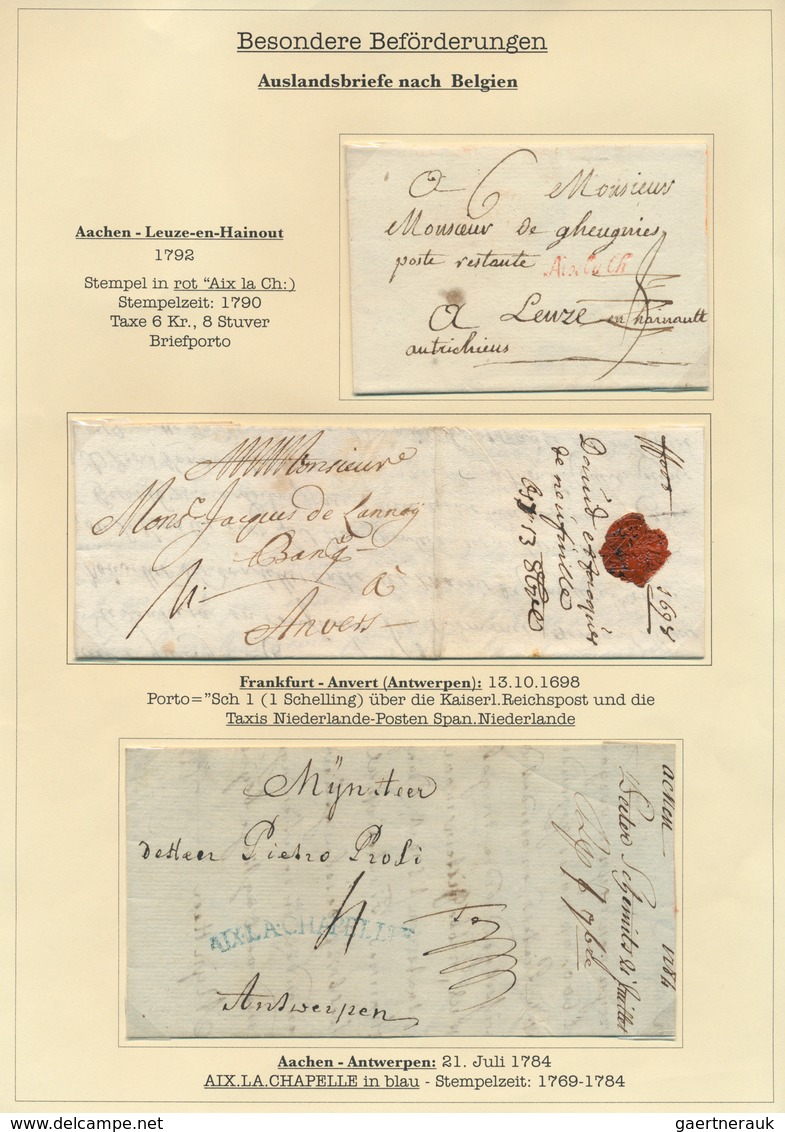 Besondere Beförderungen
Auslandsbriefe nach Belgien
Aachen - Leuze-en-Hainout
1792
Stempel in rot "Aix la Ch:)
Stempelzeit: 1790
Taxe 6 Kr., 8 Stuver
Briefporto
a 6 Monsieur
Monsieur de gheugnies
poste restante Aix la Ch
a Leuze en hainault
autrichiens
Monsieur
Mons. Jacques de Lannoy
Banq
a
Anvers
David et Jacques
de neufuille
13
1698
Frankfurt - Anvert (Antwerpen): 13.10.1698
Porto="Sch 1 (1 Schelling) über die Kaiserl.Reichspost und die
Taxis Niederlande-Posten Span.Niederlande
Mijnheer
de Heer Pietro Proli
4
AIX.LA.CHAPELLE
Antwerpen
achen 1784
Aachen - Antwerpen: 21. Juli 1784
AIX.LA.CHAPELLE in blau - Stempelzeit: 1769-1784
gaertnerauk